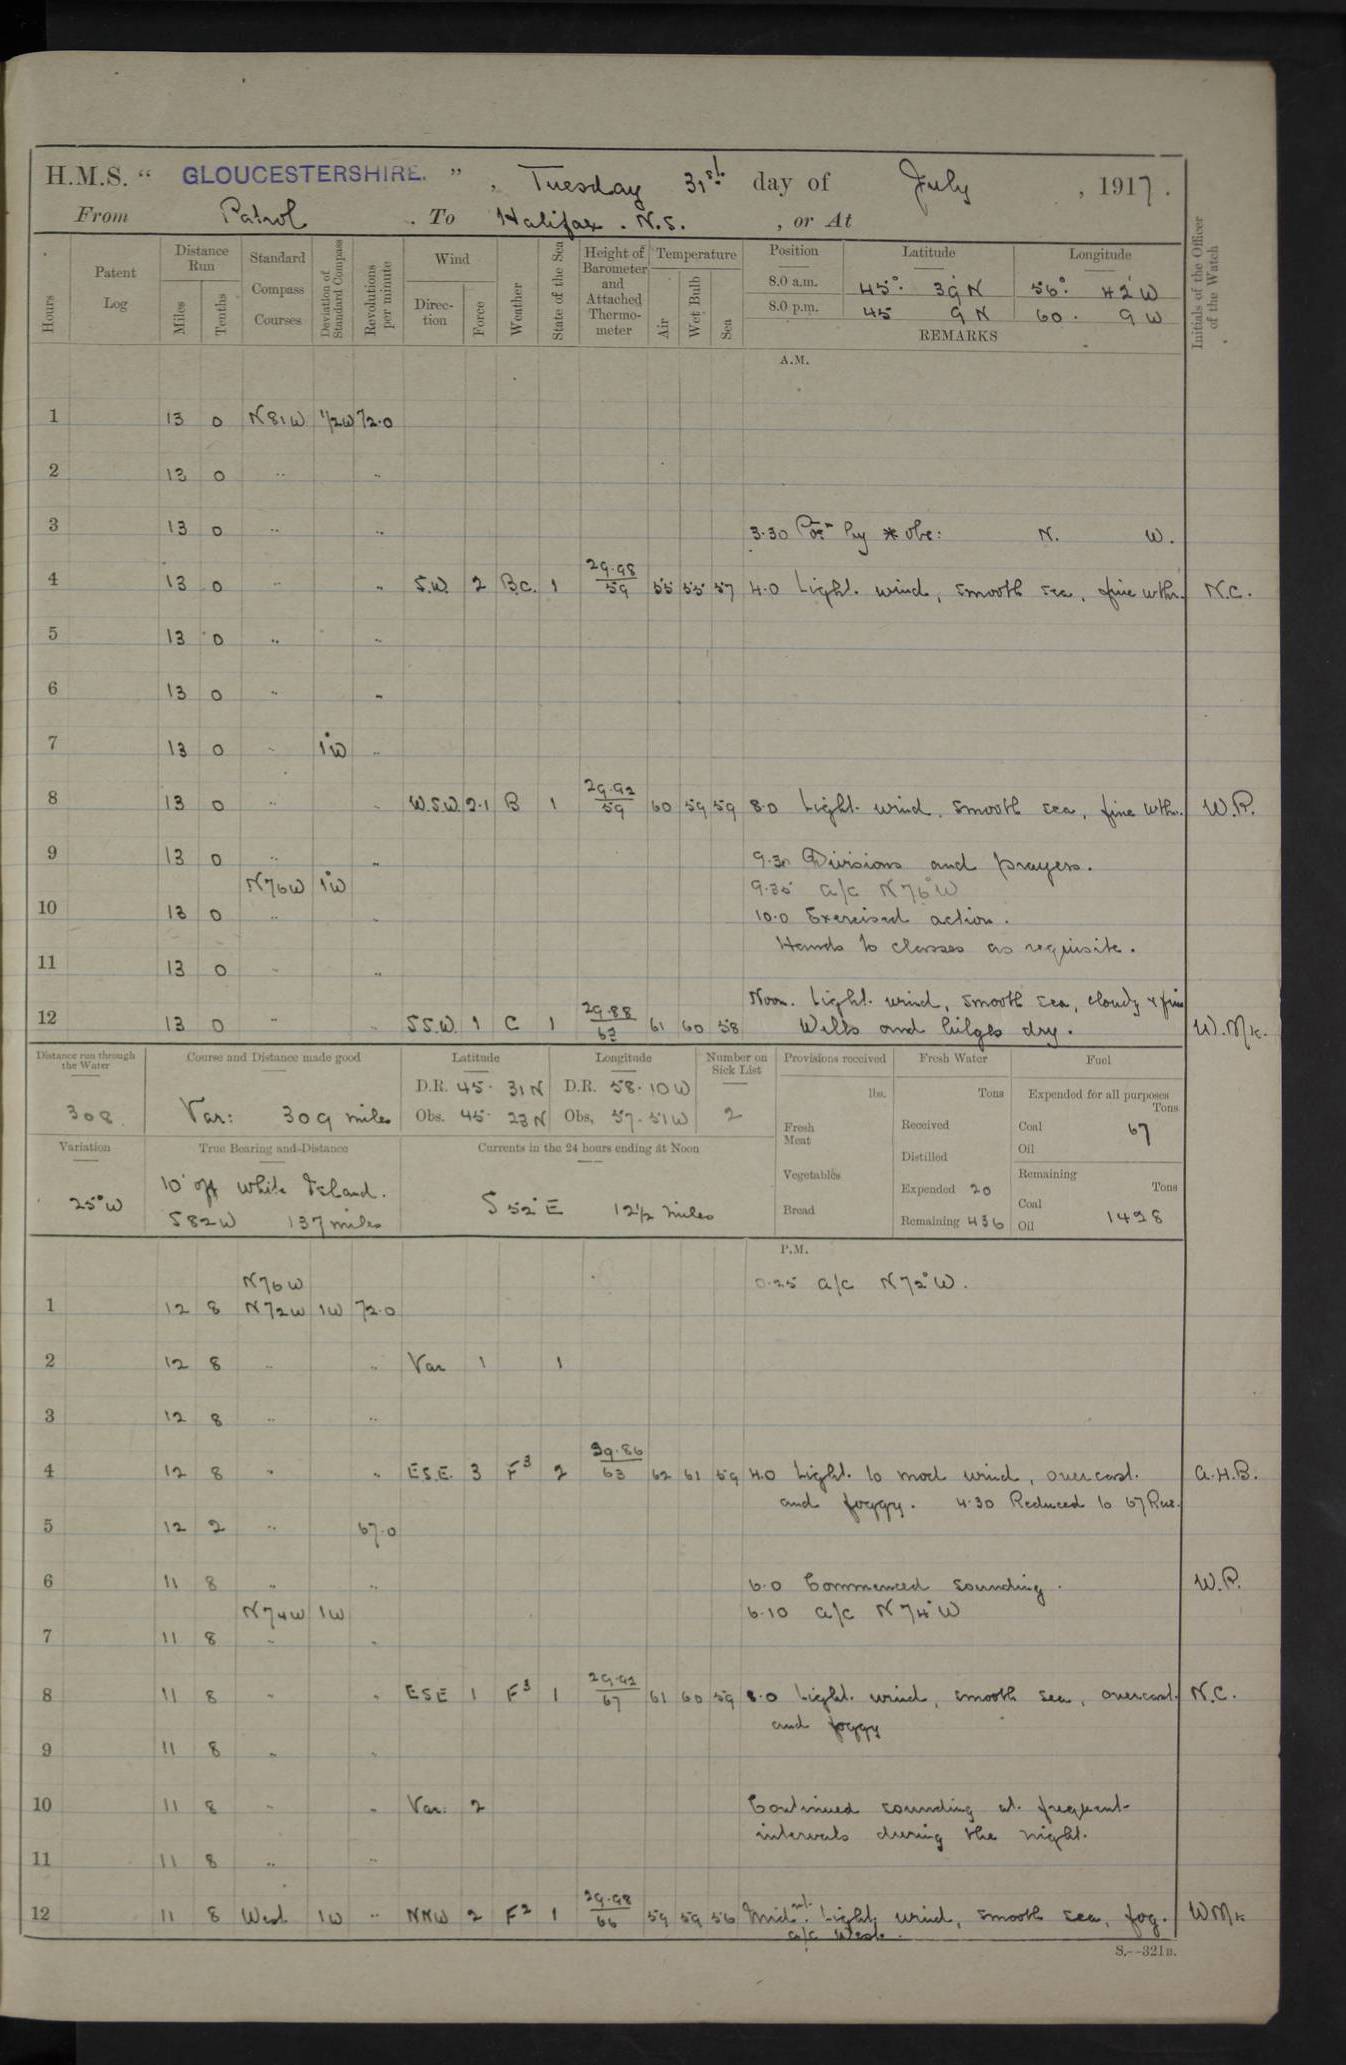 H.M.S. “ GLOUCESTERSHIRE. ” , Tuesday 31st day of July , 1917.
From Patrol . To Halifax . N.S. , or At
Hours Patent Log Distance Run Miles Tenths Standard Compass Courses Deviation of Standard Compass Revolutions per minute Wind Direc-tion Force Weather State of the Sea Height of Barometer and Attached Thermo-meter Temperature Air Wet Bulb Sea Position Latitude Longitude Initials of the Officer of the Watch
8.0 a.m. 45° 39' N 56° 42' W
8.0 p.m. 45 9 N 60 . 9 W
REMARKS
A.M.
1 13 0 N81W 1/2W 72.0
2 13 0 .. ..
3 13 0 .. .. 3.30 Posn by * obs: N. W.
4 13 0 .. .. S.W. 2 B.C. 1 29.98/59 55 55 57 4.0 Light wind, smooth sea, fine wthr. N.C.
5 13 0 .. ..
6 13 0 .. ..
7 13 0 .. 1°W ..
8 13 0 .. .. W.S.W. 2.1 B 1 29.92/59 60 59 59 8.0 Light wind, smooth sea, fine wthr. W.P.
9 13 0 .. .. 9.30 Divisions and prayers.
N76W 1°W 9.35 a/c N76°W
10 13 0 .. .. 10.0 Exercised action.
Hands to classes as requisite.
11 13 0 .. ..
Noon. Light wind, smooth sea, cloudy & fine
12 13 0 .. .. S.S.W. 1 C 1 29.88/62 61 60 58 Wells and bilges dry. W.Mk.
Distance run through the Water Course and Distance made good Latitude Longitude Number on Sick List Provisions received Fresh Water Fuel
D.R. 45. 31 N D.R. 58. 10 W lbs. Tons Expended for all purposes Tons
308 Var: 309 miles Obs. 45. 23 N Obs. 57. 51 W 2 Fresh Meat Received Coal 67
Oil
Variation True Bearing and Distance Currents in the 24 hours ending at Noon Distilled
Vegetables Remaining Tons
25°W 10' off White Island. S 52° E 12½ miles Expended 20 Coal
S82W 137 miles Bread Remaining 436 Oil 1428
P.M.
N76W 0.25 a/c N72°W.
1 12 8 N72W 1W 72.0
2 12 8 .. .. Var 1 1
3 12 8 .. ..
4 12 8 .. .. E.S.E. 3 F3 2 29.86/63 62 61 59 4.0 Light to mod wind, overcast A.H.B.
and foggy. 4.30 Reduced to 67 Revs.
5 12 2 .. 67.0
6 11 8 .. .. 6.0 Commenced sounding. W.P.
N74W 1W 6.10 a/c N74°W
7 11 8 .. ..
8 11 8 .. .. ESE 1 F3 1 29.92/67 61 60 59 8.0 Light wind, smooth sea, overcast N.C.
and foggy
9 11 8 .. ..
10 11 8 .. .. Var: 2 Continued sounding at frequent
intervals during the night.
11 11 8 .. ..
12 11 8 West 1W .. NNW 2 F2 1 29.98/66 59 59 56 Midnt. Light wind, smooth sea, fog. WMk
a/c West.
S.—321B.